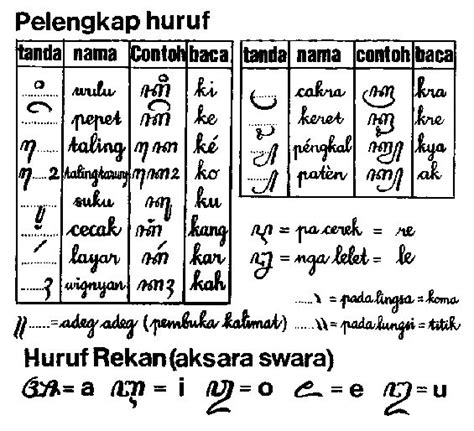 Pelengkap huruf
tanda nama Contoh baca
ꦶ wulu ꦏꦶ ki
ꦼ pepet ꦏꦼ ke
ꦺ taling ꦏꦺ ké
ꦺꦴ talingtarung ꦏꦺꦴ ko
ꦸ suku ꦏꦸ ku
ꦁ cecak ꦏꦁ kang
ꦂ layar ꦏꦂ kar
ꦃ wignyan ꦏꦃ kah
tanda nama contoh baca
ꦿ cakra ꦏꦿ kra
ꦽ keret ꦏꦽ kre
ꦾ péngkal ꦏꦾ kya
꧀ patèn ꦏ꧀ ak
ꦉ = pa cerek = re
ꦊ = nga lelet = le
.....꧈ = pada lingsa = koma
꧋.....=adeg adeg (pembuka kalimat) .....꧉ = pada lungsi = titik
Huruf Rekan (aksara swara)
ꦄ= a ꦆ = i ꦎ = o ꦌ = e ꦈ = u